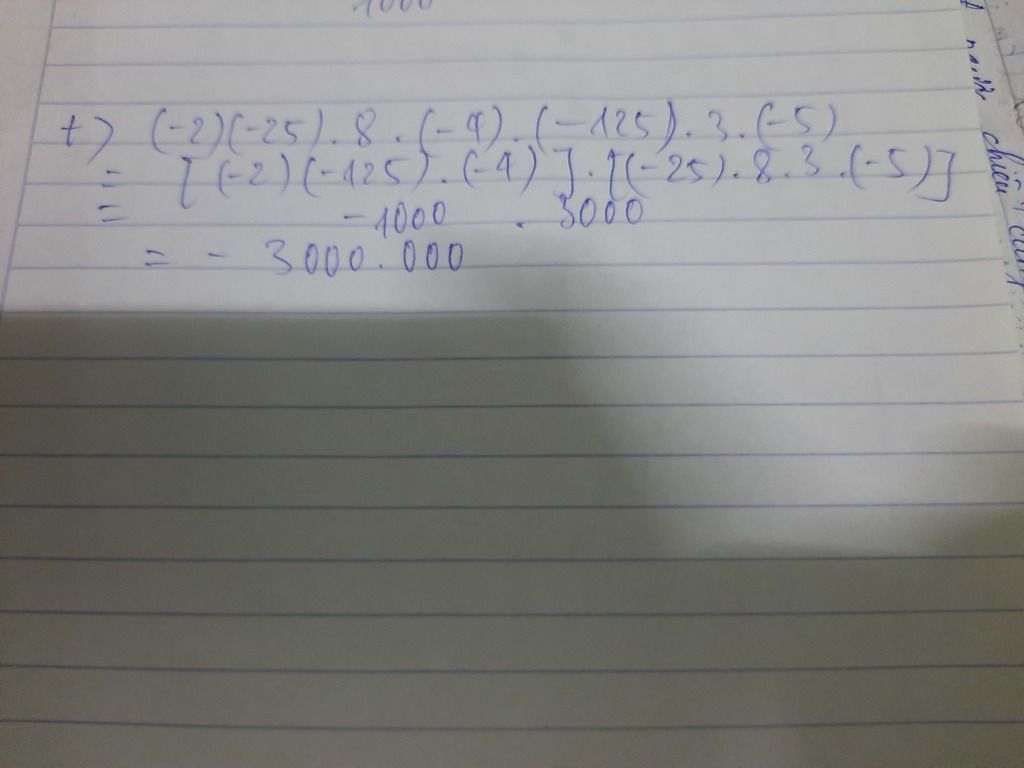 1000
t) (-2)(-25).8.(-4).(-125).3.(-5)
= [(-2)(-125).(-4)].[(-25).8.3.(-5)]
= -1000 . 3000
= - 3000.000
chiều